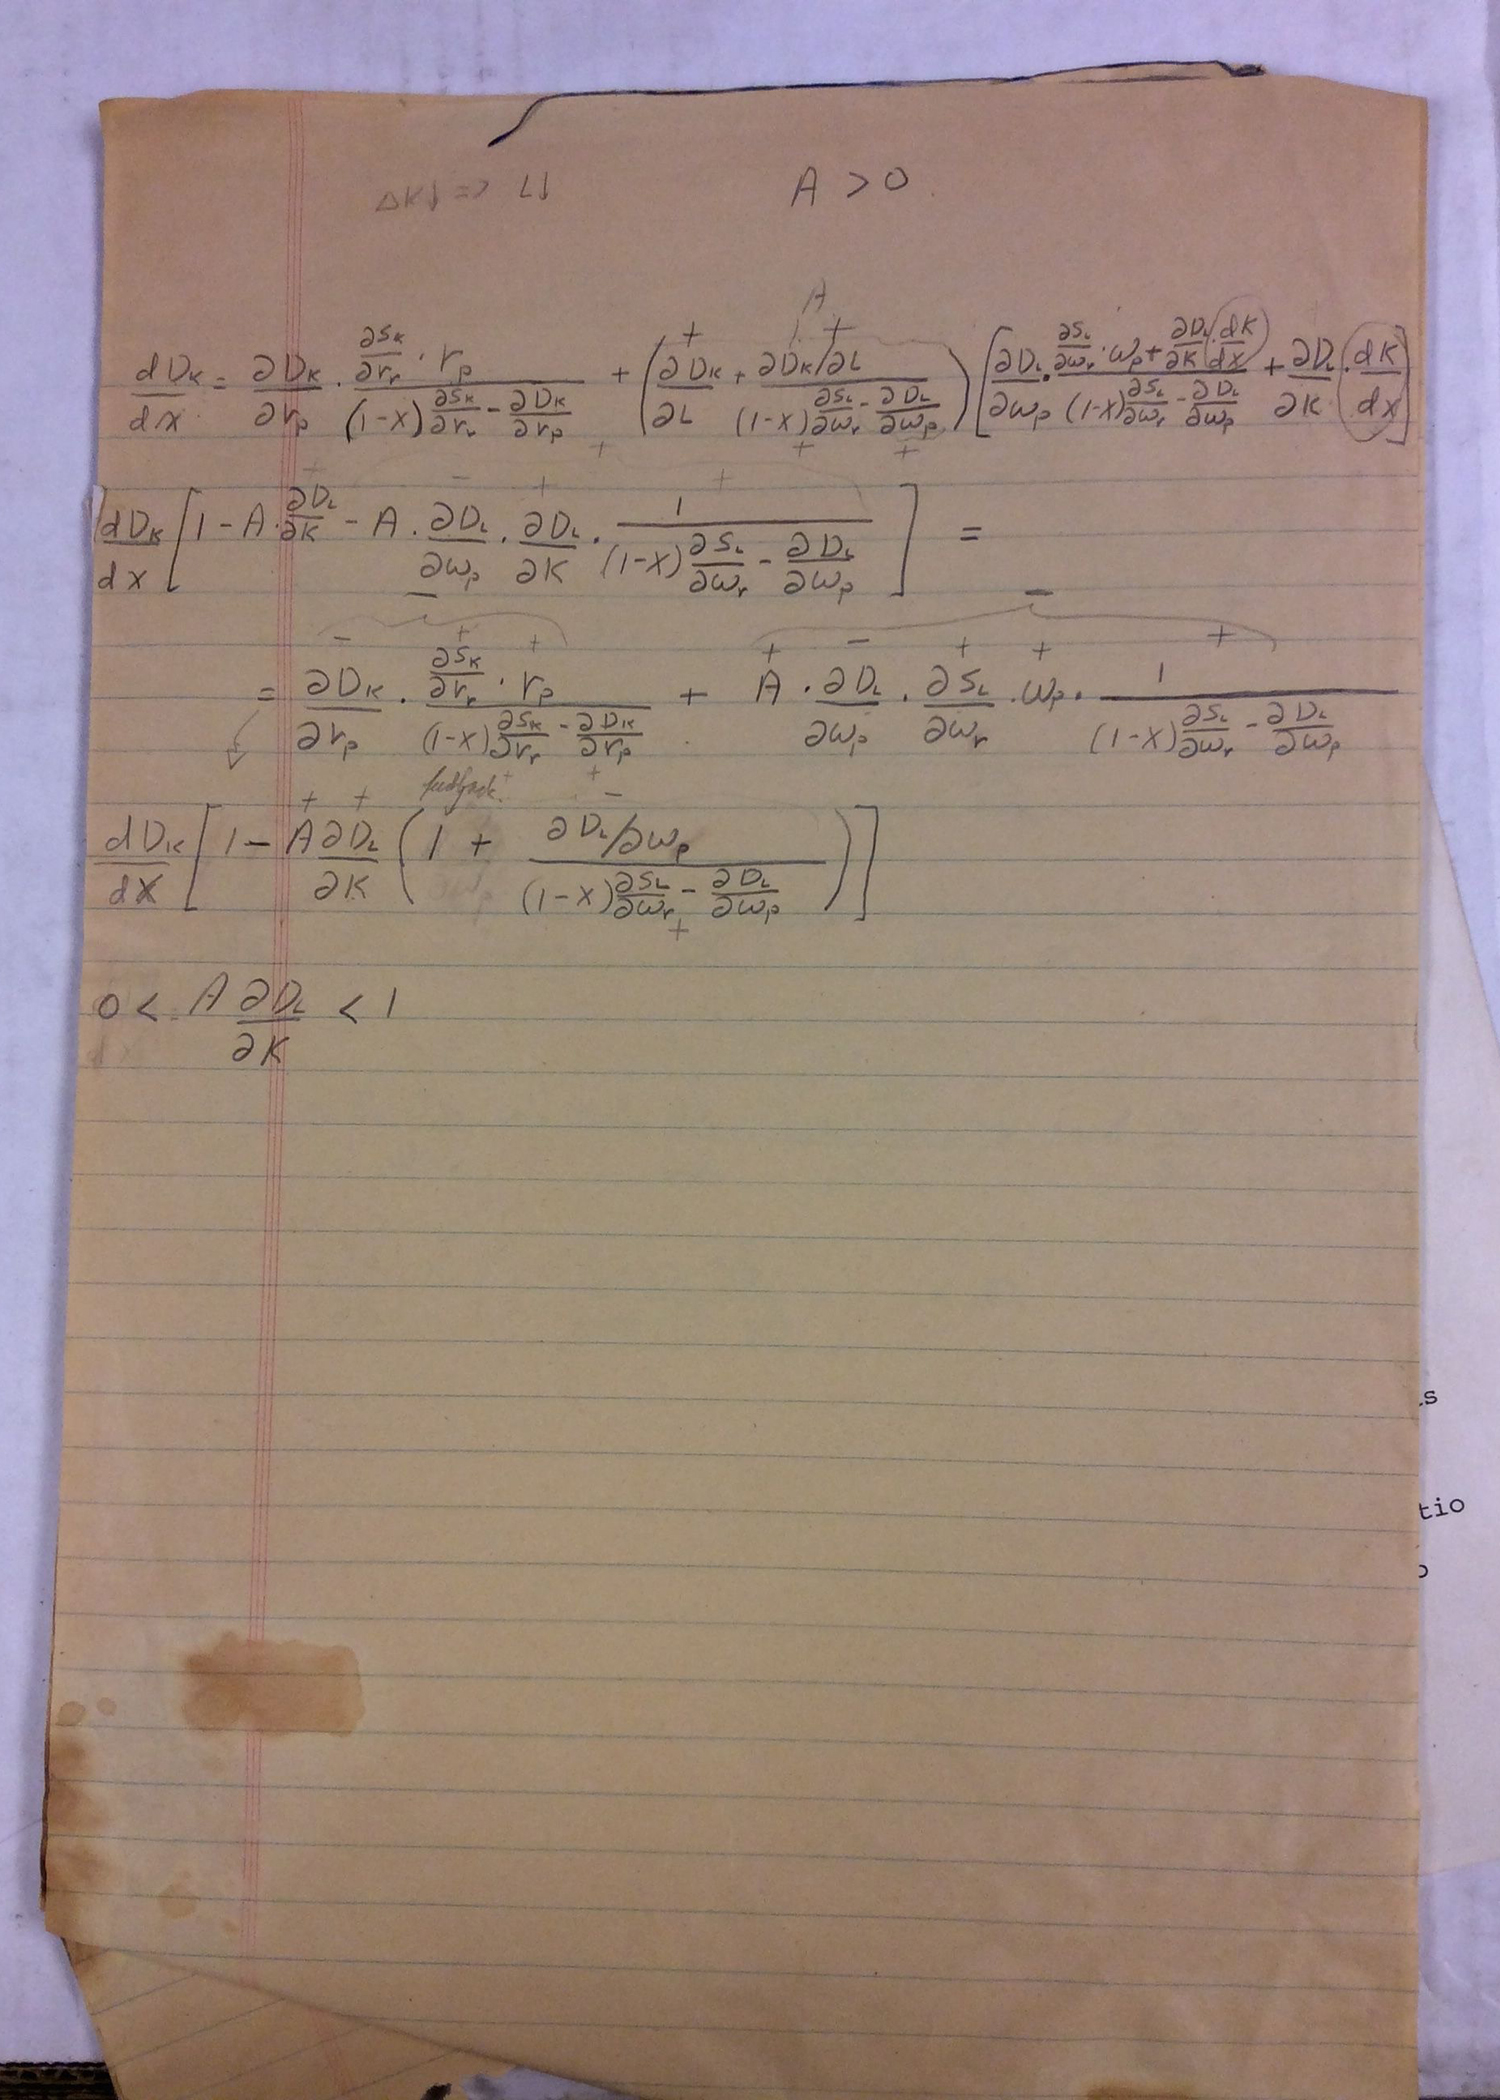 ΔK↓ => L↓    A > 0
A
+    +
dD_K/dx = ∂D_K/∂r_p · (∂S_K/∂r_r · r_p)/((1-x)∂S_K/∂r_r - ∂D_K/∂r_p) + (∂D_K/∂L + (∂D_K/∂L)/((1-x)∂S_L/∂w_r - ∂D_L/∂w_p)) [∂D_L/∂w_p · (∂S_L/∂w_r · w_p + ∂D_L/∂K · dK/dx)/((1-x)∂S_L/∂w_r - ∂D_L/∂w_p) + ∂D_L/∂K · dK/dx]
+    +    +
+    -    +    +
dD_K/dx [1 - A · ∂D_L/∂K - A · ∂D_L/∂w_p · ∂D_L/∂K · 1/((1-x)∂S_L/∂w_r - ∂D_L/∂w_p)] =
-    -
-    +    +    +    -    +    +    +
= ∂D_K/∂r_p · (∂S_K/∂r_r · r_p)/((1-x)∂S_K/∂r_r - ∂D_K/∂r_p) + A · ∂D_L/∂w_p · ∂S_L/∂w_r · w_p · 1/((1-x)∂S_L/∂w_r - ∂D_L/∂w_p)
+    +
+    +    -
dD_K/dx [1 - A ∂D_L/∂K (1 + (∂D_L/∂w_p)/((1-x)∂S_L/∂w_r - ∂D_L/∂w_p))]
+
0 < A ∂D_L/∂K < 1
s
tio